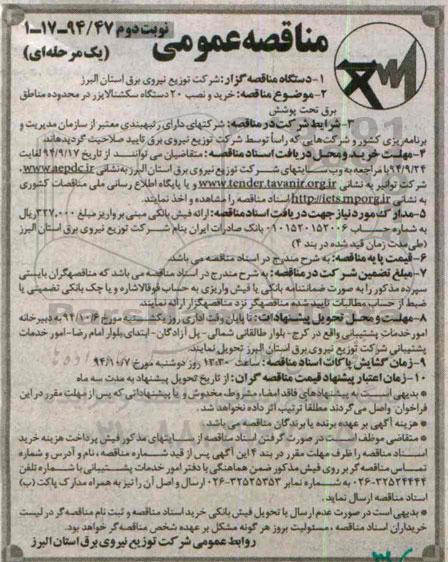 مناقصه عمومی
نوبت دوم ۹۴/۴۷-۱۷-۱
(یک مرحله‌ای)
۱-دستگاه مناقصه گزار: شرکت توزیع نیروی برق استان البرز
۲-موضوع مناقصه: خرید و نصب ۲۰ دستگاه سکشنالایزر در محدوده مناطق
برق تحت پوشش
۳-شرایط شرکت در مناقصه: شرکتهای دارای رتبه‍بندی معتبر از سازمان مدیریت و
برنامه‌ریزی کشور و شرکت‌هایی که راساً توسط شرکت توزیع نیروی برق تایید صلاحیت گردیده‌اند.
۴-مهلت خرید و محل دریافت اسناد مناقصه: متقاضیان می توانند از تاریخ ۹۴/۹/۱۷ لغایت
۹۴/۹/۲۴ با مراجعه به وب سایتهای شرکت توزیع نیروی برق استان البرز به نشانی www.aepdc.ir
شرکت توانیر به نشانی www.tender.tavanir.org.ir و یا پایگاه اطلاع رسانی ملی مناقصات کشوری
به نشانی http://iets.mporg.ir اسناد مناقصه را مشاهده و اخذ نمایند.
۵-مدارک مورد نیاز جهت دریافت اسناد مناقصه: ارائه فیش بانکی مبنی بر واریز مبلغ ۳۲۷،۰۰۰ ریال
به شماره حساب ۰۱۰۱۵۲۰۱۵۲۰۰۶ بانک صادرات ایران بنام شرکت توزیع نیروی برق استان البرز
(طی مدت زمان قید شده در بند ۴)
۶-قیمت پایه مناقصه: به شرح مندرج در اسناد مناقصه می باشد.
۷-مبلغ تضمین شرکت در مناقصه: به شرح مندرج در اسناد مناقصه می باشد که مناقصه‌گران بایستی
سپرده مذکور را به صورت ضمانتنامه بانکی یا فیش واریزی به حساب فوق‌الاشاره و یا چک بانکی تضمینی یا
ضبط از حساب مطالبات تایید شده مناقصه‌گر نزد مناقصه‌گزار ارائه نمایند.
۸-مهلت و محل تحویل پیشنهادات: تا پایان وقت اداری روز یکشنبه مورخ ۹۴/۱۰/۶ به دبیرخانه
امور خدمات پشتیبانی واقع در کرج-بلوار طالقانی شمالی-پل آزادگان-ابتدای بلوار امام رضا-امور خدمات
پشتیبانی شرکت توزیع نیروی برق استان البرز تحویل نمایند.
۹-زمان گشایش پاکات اسناد مناقصه: ساعت ۱۳:۳۰ روز دوشنبه مورخ ۹۴/۱۰/۷
۱۰-زمان اعتبار پیشنهاد قیمت مناقصه گران: از تاریخ تحویل پیشنهاد به مدت سه ماه
* بدیهی است به پیشنهادهای فاقد امضاء، مشروط، مخدوش و یا پیشنهاداتی که پس از مهلت مقرر در این
فراخوان واصل می‌گردند مطلقاً ترتیب اثر داده نخواهد شد.
* هزینه آگهی بر عهده برنده یا برندگان مناقصه می باشد.
* متقاضی موظف است در صورت گرفتن اسناد مناقصه از سایتهای مذکور فیش پرداخت هزینه خرید
اسناد مناقصه را ظرف مهلت مقرر در بند ۴ این آگهی پس از قید شماره مناقصه، نام و آدرس و شماره
تماس مناقصه گر بر روی فیش مذکور ضمن هماهنگی با دفتر امور خدمات پشتیبانی با شماره تلفن
۰۲۶-۳۲۵۲۴۴۴۴ به شماره نمابر ۰۲۶-۳۲۵۲۵۳۵۳ ارسال و اصل آن را نیز به همراه مدارک پاکت (ب)
اسناد مناقصه ارسال نماید.
* بدیهی است در صورت عدم ارسال یا تحویل فیش بانکی خرید اسناد مناقصه و ثبت نام مناقصه‌گر در لیست
خریداران اسناد مناقصه، مسئولیت بروز هر گونه مشکل بر عهده شخص مناقصه گر خواهد بود.
روابط عمومی شرکت توزیع نیروی برق استان البرز